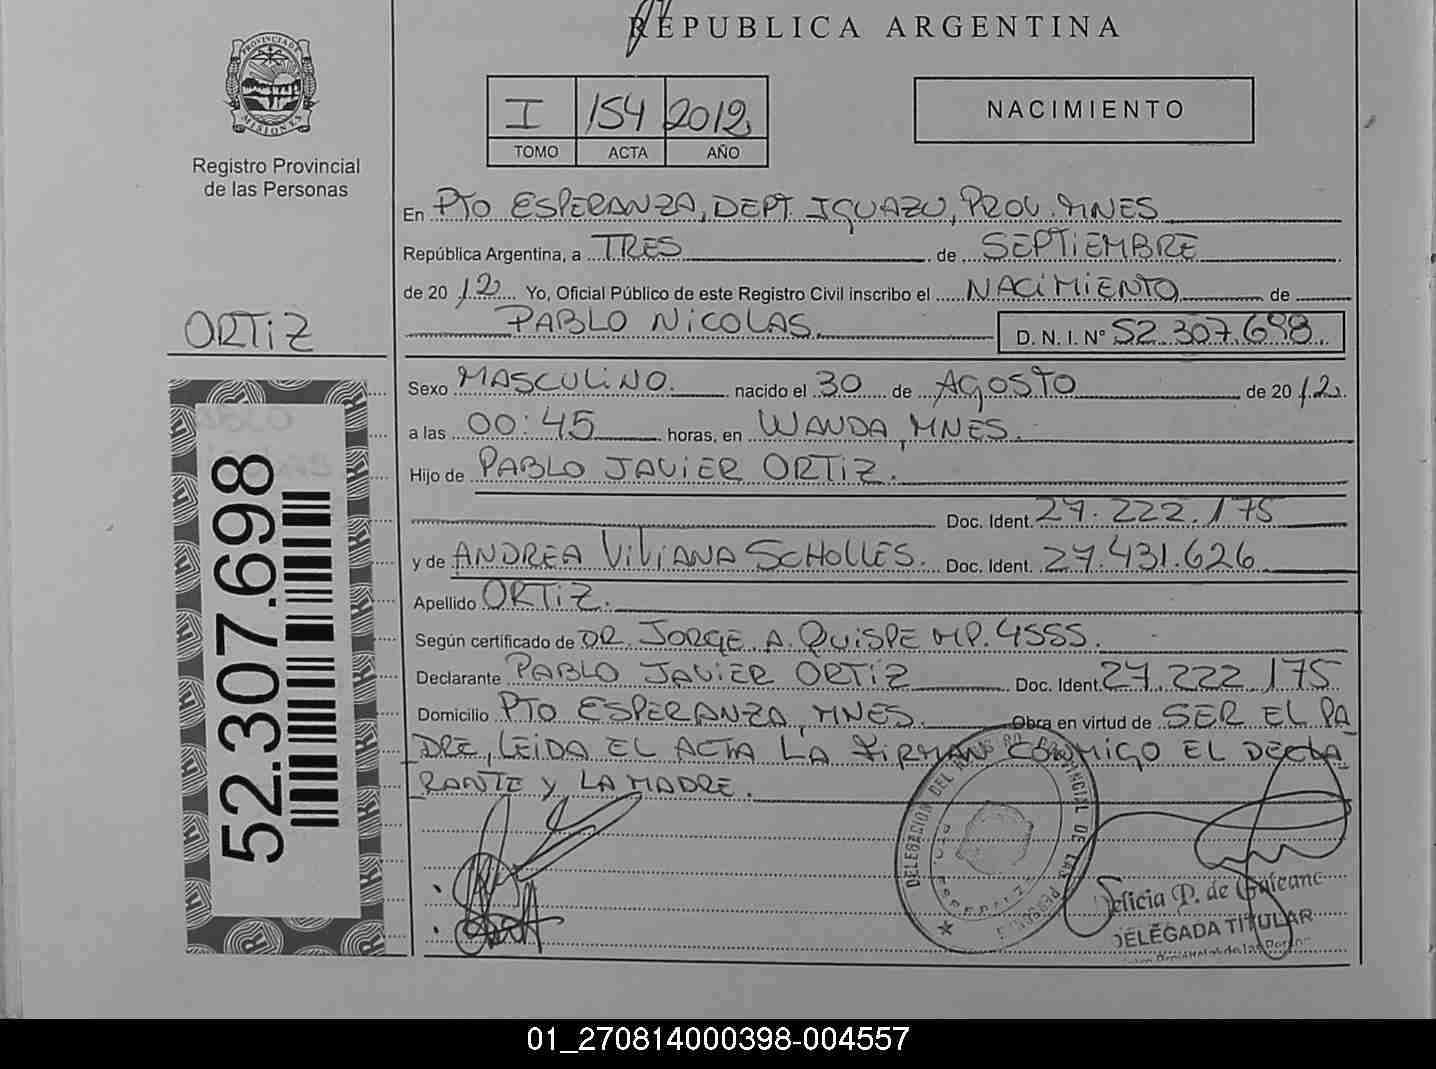 REPUBLICA ARGENTINA
PROVINCIA DE MISIONES
Registro Provincial
de las Personas
I 154 2012
TOMO ACTA AÑO
NACIMIENTO
En PTO ESPERANZA, DEPT. IGUAZU, PROV. MNES
República Argentina, a TRES de SEPTIEMBRE
de 2012 Yo, Oficial Público de este Registro Civil inscribo el NACIMIENTO de
PABLO NICOLAS. D. N. I. Nº 52.307.698.
ORTIZ
52.307.698
Sexo MASCULINO. nacido el 30 de AGOSTO de 2012.
a las 00:45 horas, en WANDA, MNES.
Hijo de PABLO JAVIER ORTIZ.
Doc. Ident. 27.222.175
y de ANDREA VIVIANA SCHOLLES. Doc. Ident. 27.431.626
Apellido ORTIZ.
Según certificado de DR. JORGE. A. QUISPE MP. 4555.
Declarante PABLO JAVIER ORTIZ Doc. Ident. 27.222.175
Domicilio PTO ESPERANZA, MNES. Obra en virtud de SER EL PA
DRE, LEIDA EL ACTA LA FIRMAN CONMIGO EL DECLA
RANTE Y LA MADRE.
DELEGACION DEL REGISTRO PROVINCIAL DE LAS PERSONAS
ESPERANZA
P. de
DELEGADA TITULAR
01_270814000398-004557